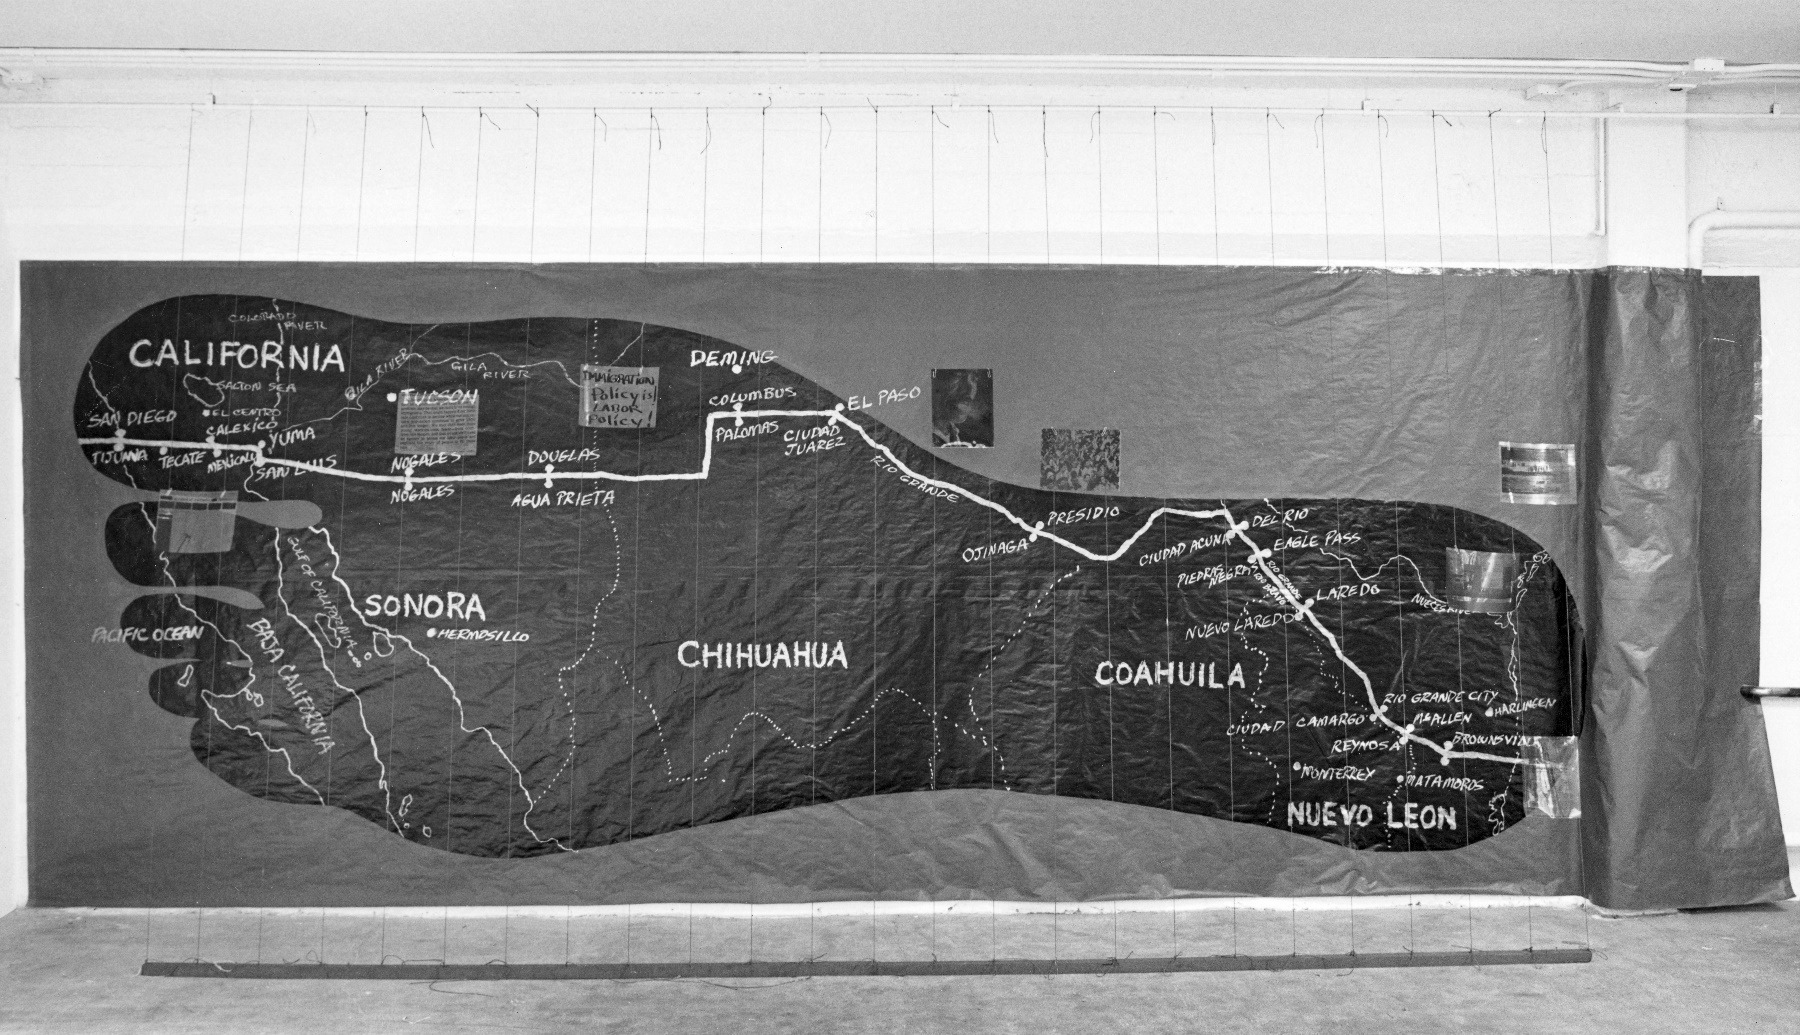 COLORADO
RIVER
CALIFORNIA
SALTON SEA
GILA RIVER
GILA
RIVER
TUCSON
IMMIGRATION
Policy is
LABOR
Policy!
DEMING
COLUMBUS
PALOMAS
EL PASO
CIUDAD
JUAREZ
RIO GRANDE
SAN DIEGO
EL CENTRO
CALEXICO
YUMA
TIJUANA
TECATE
MEXICALI
SAN LUIS
NOGALES
NOGALES
DOUGLAS
AGUA PRIETA
PRESIDIO
OJINAGA
DEL RIO
CIUDAD ACUNA
EAGLE PASS
PIEDRAS
NEGRAS
RIO GRANDE
RIO BRAVO
LAREDO
NUEVO LAREDO
NUECES RIVER
GULF OF CALIFORNIA
SONORA
HERMOSILLO
PACIFIC OCEAN
BAJA CALIFORNIA
CHIHUAHUA
COAHUILA
RIO GRANDE CITY
CIUDAD CAMARGO
McALLEN
HARLINGEN
REYNOSA
BROWNSVILLE
MONTERREY
MATAMOROS
NUEVO LEON